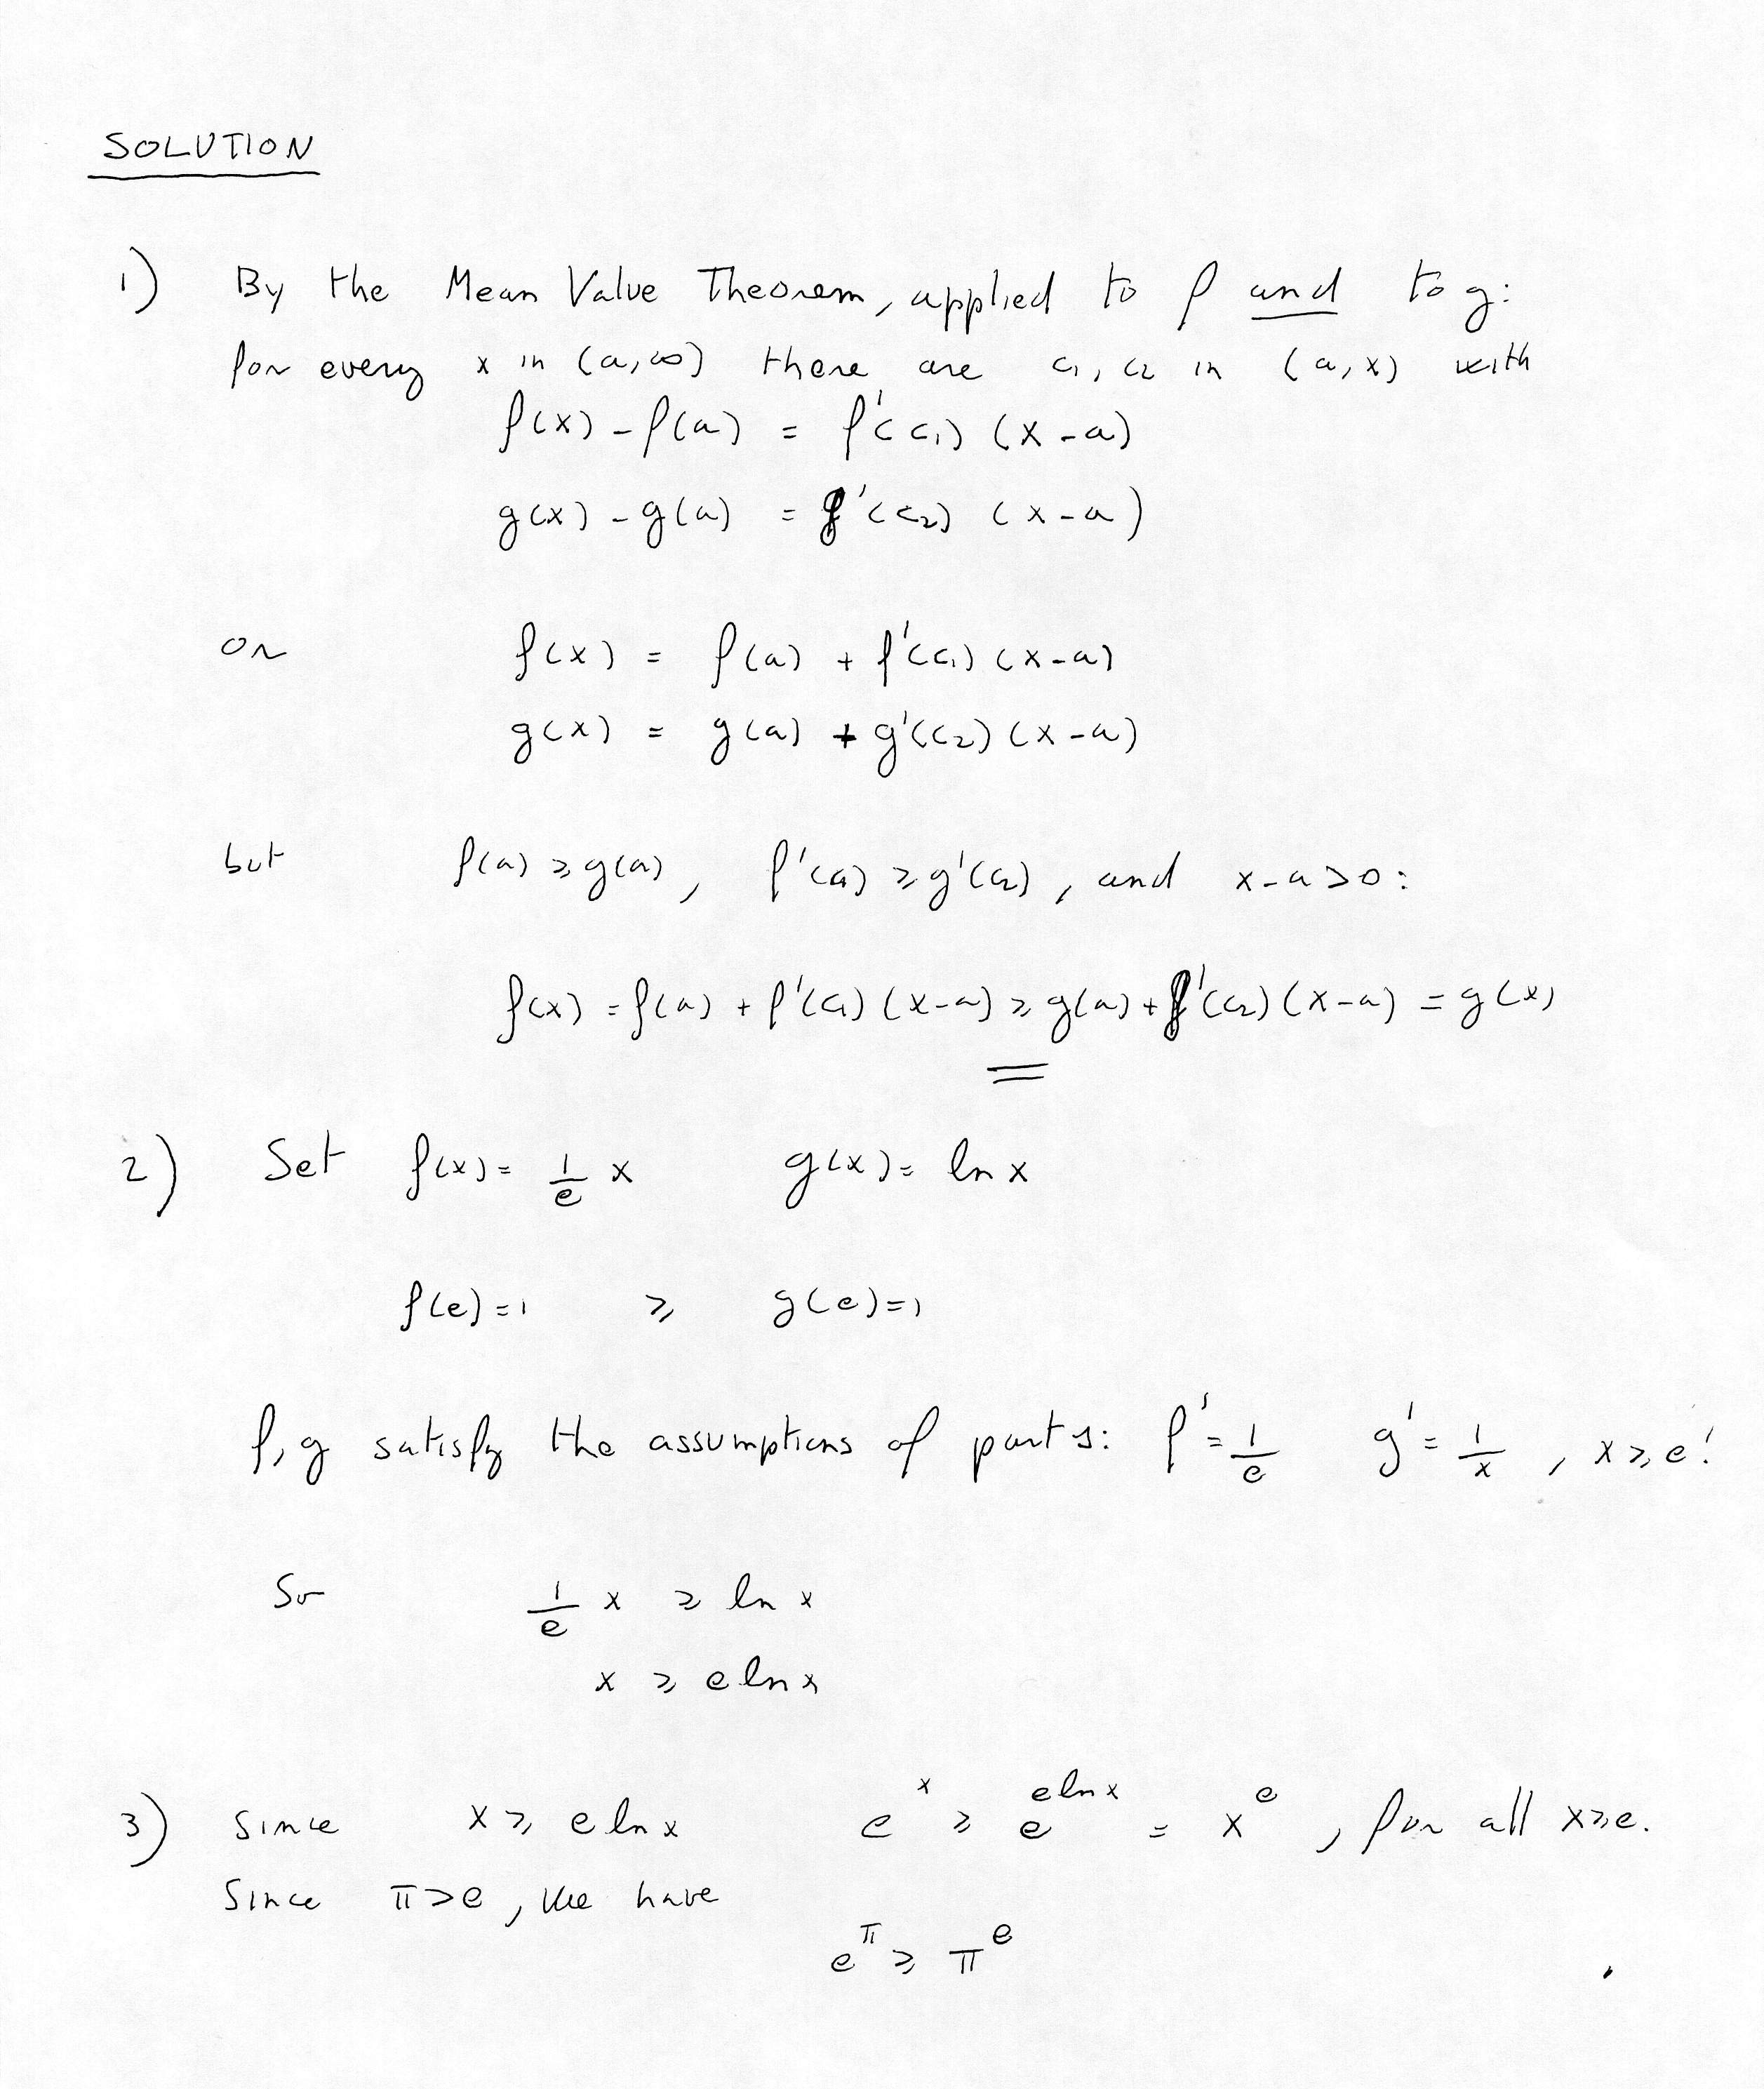 SOLUTION
1) By the Mean Value Theorem, applied to f and to g:
for every x in (a,∞) there are c₁, c₂ in (a,x) with
f(x) - f(a) = f'(c₁) (x-a)
g(x) - g(a) = g'(c₂) (x-a)
or f(x) = f(a) + f'(c₁)(x-a)
g(x) = g(a) + g'(c₂)(x-a)
but f(a) ≥ g(a), f'(c₁) ≥ g'(c₂), and x-a>0:
f(x) = f(a) + f'(c₁)(x-a) ≥ g(a) + g'(c₂)(x-a) = g(x)
2) Set f(x) = 1/e x g(x) = ln x
f(e)=1 ≥ g(e)=1
f, g satisfy the assumptions of part 1: f' = 1/e g' = 1/x, x ≥ e!
So 1/e x ≥ ln x
x ≥ e ln x
3) Since x ≥ e ln x e^x ≥ e^(e ln x) = x^e, for all x≥e.
Since π>e, we have
e^π ≥ π^e